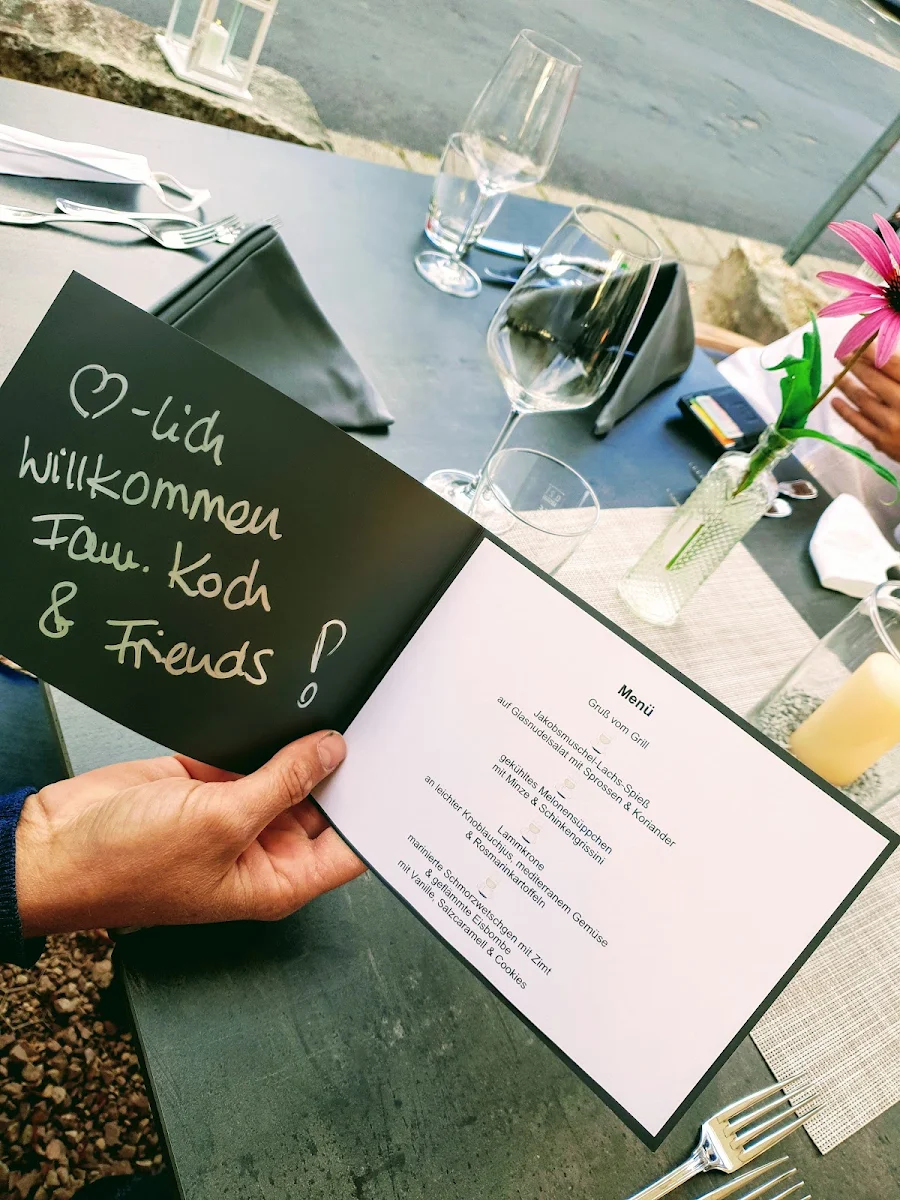 ♡-lich
Willkommen
Fam. Koch
& Friends !
Menü
Gruß vom Grill
Jakobsmuschel-Lachs-Spieß
auf Glasnudelsalat mit Sprossen & Koriander
gekühltes Melonensüppchen
mit Minze & Schinkengrissini
Lammkrone
an leichter Knoblauchjus, mediterranem Gemüse
& Rosmarinkartoffeln
marinierte Schmorzwetschgen mit Zimt
& geflämmte Eisbombe
mit Vanille, Salzcaramell & Cookies